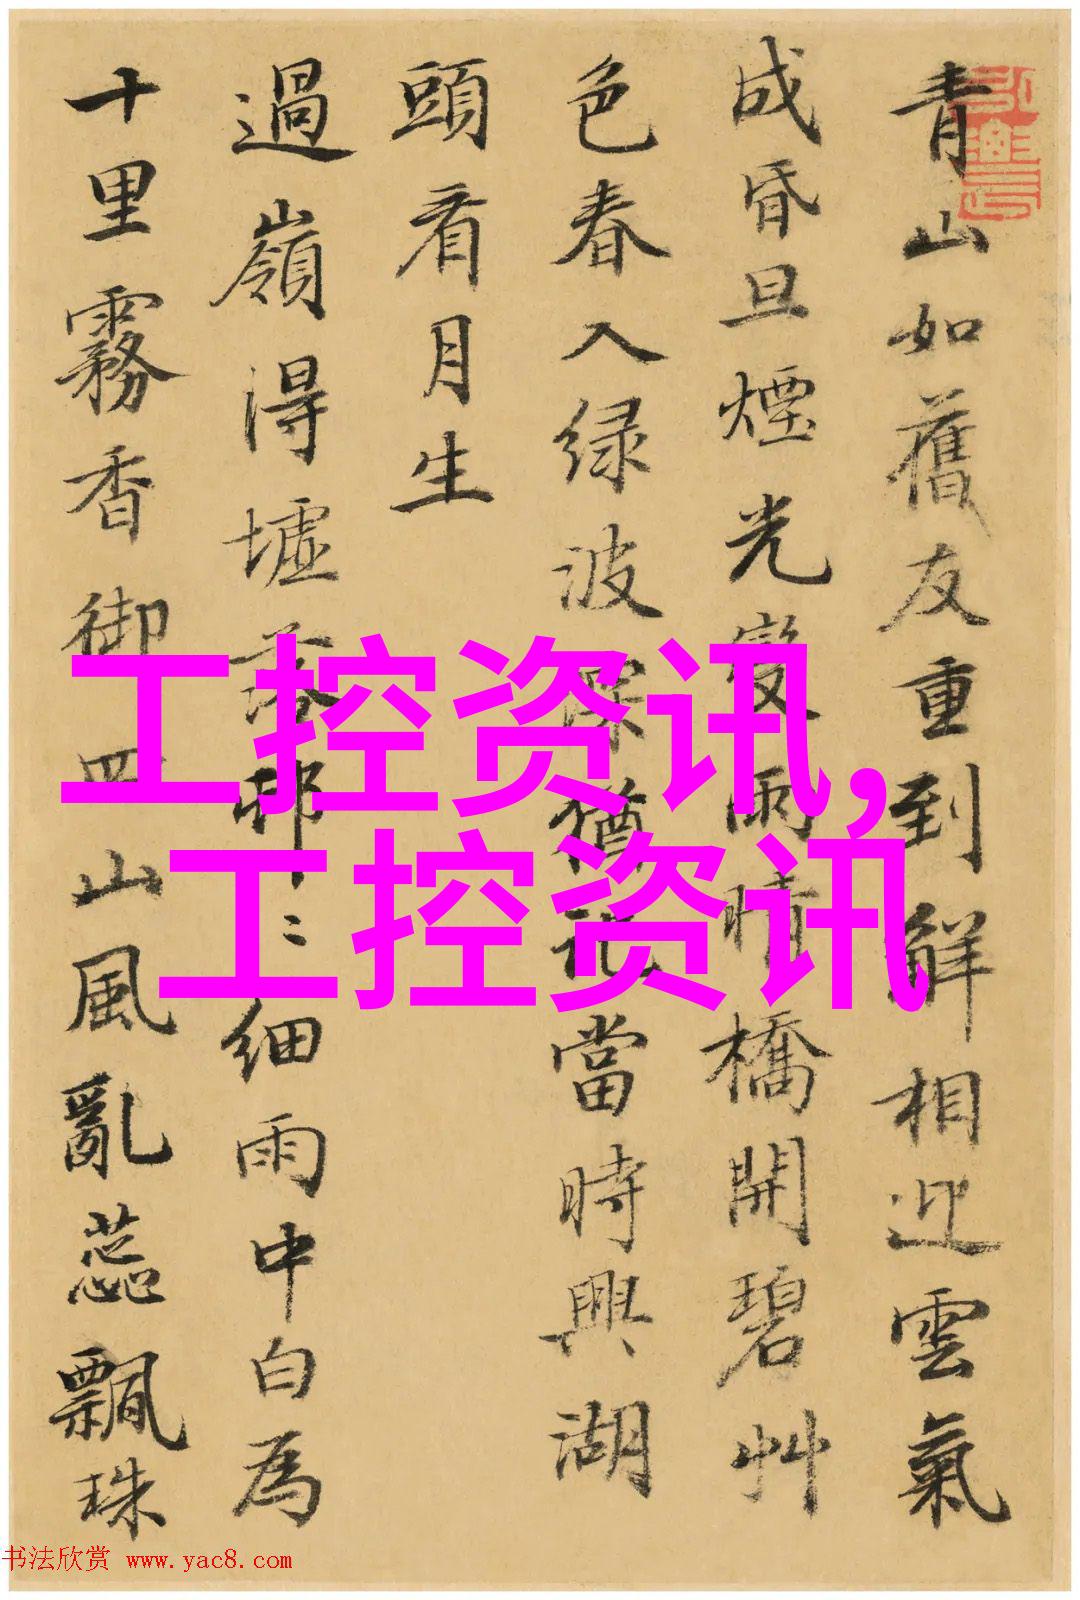 青山如舊友重到觧相迎雲氣
成昏旦煙光變雨晴橋開碧艸
色春入绿波深猶記當時興湖
頭看月生
過嶺得墟落邨〻細雨中白為
十里霧香御四山風亂蕊飄珠
工控资讯,
工控资讯
书法欣赏 www.yac8.com